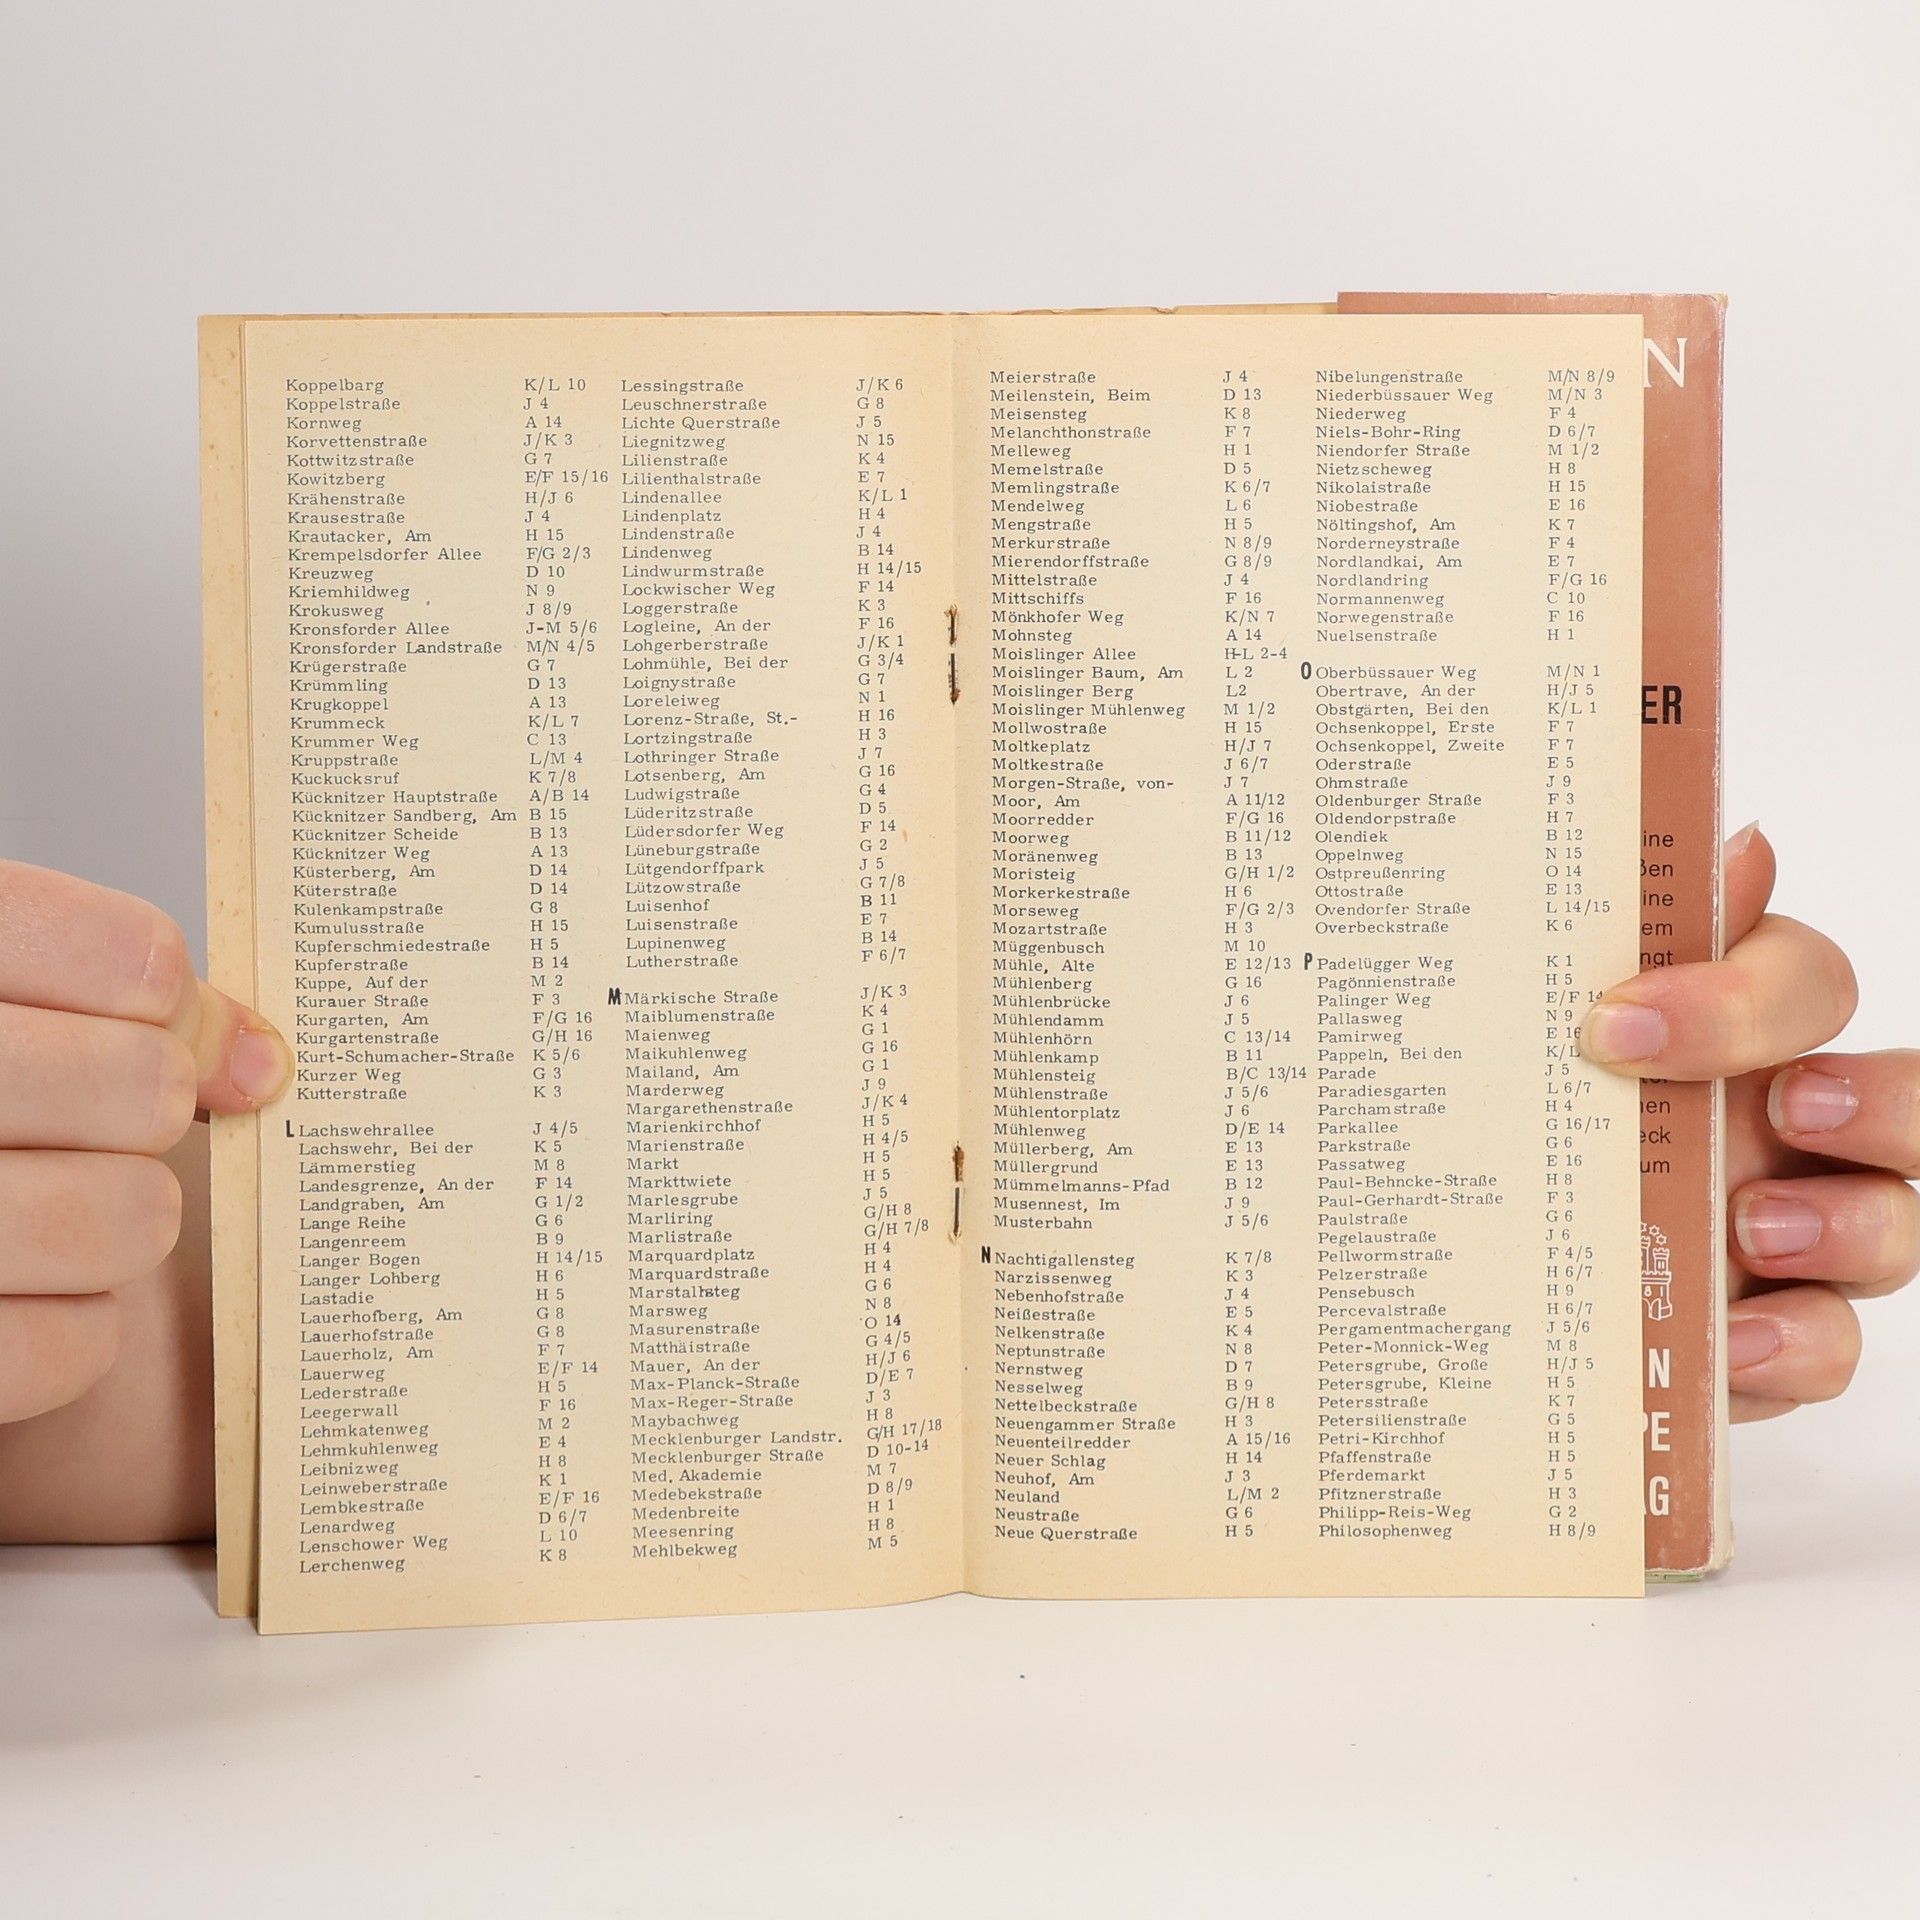 Koppelbarg K/L 10
Koppelstraße J 4
Kornweg A 14
Korvettenstraße J/K 3
Kottwitzstraße G 7
Kowitzberg E/F 15/16
Krähenstraße H/J 6
Krausestraße J 4
Krautacker, Am H 15
Krempelsdorfer Allee F/G 2/3
Kreuzweg D 10
Kriemhildweg N 9
Krokusweg J 8/9
Kronsforder Allee J-M 5/6
Kronsforder Landstraße M/N 4/5
Krügerstraße G 7
Krümmling D 13
Krugkoppel A 13
Krummeck K/L 7
Krummer Weg C 13
Kruppstraße L/M 4
Kuckucksruf K 7/8
Kücknitzer Hauptstraße A/B 14
Kücknitzer Sandberg, Am B 15
Kücknitzer Scheide B 13
Kücknitzer Weg A 13
Küsterberg, Am D 14
Küterstraße D 14
Kulenkampstraße G 8
Kumulusstraße H 15
Kupferschmiedestraße H 5
Kupferstraße B 14
Kuppe, Auf der M 2
Kurauer Straße F 3
Kurgarten, Am F/G 16
Kurgartenstraße G/H 16
Kurt-Schumacher-Straße K 5/6
Kurzer Weg G 3
Kutterstraße K 3
L Lachswehrallee J 4/5
Lachswehr, Bei der K 5
Lämmerstieg M 8
Landesgrenze, An der F 14
Landgraben, Am G 1/2
Lange Reihe G 6
Langenreem B 9
Langer Bogen H 14/15
Langer Lohberg H 6
Lastadie H 5
Lauerhofberg, Am G 8
Lauerhofstraße G 8
Lauerholz, Am F 7
Lauerweg E/F 14
Lederstraße H 5
Leegerwall F 16
Lehmkatenweg M 2
Lehmkuhlenweg E 4
Leibnizweg H 8
Leinweberstraße K 1
Lembkestraße E/F 16
Lenardweg D 6/7
Lenschower Weg L 10
Lerchenweg K 8
Lessingstraße J/K 6
Leuschnerstraße G 8
Lichte Querstraße J 5
Liegnitzweg N 15
Lilienstraße K 4
Lilienthalstraße E 7
Lindenallee K/L 1
Lindenplatz H 4
Lindenstraße J 4
Lindenweg B 14
Lindwurmstraße H 14/15
Lockwischer Weg F 14
Loggerstraße K 3
Logleine, An der F 16
Lohgerberstraße J/K 1
Lohmühle, Bei der G 3/4
Loignystraße G 7
Loreleiweg N 1
Lorenz-Straße, St.- H 16
Lortzingstraße H 3
Lothringer Straße J 7
Lotsenberg, Am G 16
Ludwigstraße G 4
Lüderitzstraße D 5
Lüdersdorfer Weg F 14
Lüneburgstraße G 2
Lütgendorffpark J 5
Lützowstraße G 7/8
Luisenhof B 11
Luisenstraße E 7
Lupinenweg B 14
Lutherstraße F 6/7
M Märkische Straße J/K 3
Maiblumenstraße K 4
Maienweg G 1
Maikuhlenweg G 16
Mailand, Am G 1
Marderweg J 9
Margarethenstraße J/K 4
Marienkirchhof H 5
Marienstraße H 4/5
Markt H 5
Markttwiete H 5
Marlesgrube J 5
Marliring G/H 8
Marlistraße G/H 7/8
Marquardplatz H 4
Marquardstraße H 4
Marstallsteg G 6
Marsweg N 8
Masurenstraße O 14
Matthäistraße G 4/5
Mauer, An der H/J 6
Max-Planck-Straße D/E 7
Max-Reger-Straße J 3
Maybachweg H 8
Mecklenburger Landstr. G/H 17/18
Mecklenburger Straße D 10-14
Med. Akademie M 7
Medebekstraße D 8/9
Medenbreite H 1
Meesenring H 8
Mehlbekweg M 5
Meierstraße J 4
Meilenstein, Beim D 13
Meisensteg K 8
Melanchthonstraße F 7
Melleweg H 1
Memelstraße D 5
Memlingstraße K 6/7
Mendelweg L 6
Mengstraße H 5
Merkurstraße N 8/9
Mierendorffstraße G 8/9
Mittelstraße J 4
Mittschiffs F 16
Mönkhofer Weg K/N 7
Mohnsteg A 14
Moislinger Allee H-L 2-4
Moislinger Baum, Am L 2
Moislinger Berg L2
Moislinger Mühlenweg M 1/2
Mollwostraße H 15
Moltkeplatz H/J 7
Moltkestraße J 6/7
Morgen-Straße, von- J 7
Moor, Am A 11/12
Moorredder F/G 16
Moorweg B 11/12
Moränenweg B 13
Moristeig G/H 1/2
Morkerkestraße H 6
Morseweg F/G 2/3
Mozartstraße H 3
Müggenbusch M 10
Mühle, Alte E 12/13
Mühlenberg G 16
Mühlenbrücke J 6
Mühlendamm J 5
Mühlenhörn C 13/14
Mühlenkamp B 11
Mühlensteig B/C 13/14
Mühlenstraße J 5/6
Mühlentorplatz J 6
Mühlenweg D/E 14
Müllerberg, Am E 13
Müllergrund E 13
Mümmelmanns-Pfad B 12
Musennest, Im J 9
Musterbahn J 5/6
N Nachtigallensteg K 7/8
Narzissenweg K 3
Nebenhofstraße J 4
Neißestraße E 5
Nelkenstraße K 4
Neptunstraße N 8
Nernstweg D 7
Nesselweg B 9
Nettelbeckstraße G/H 8
Neuengammer Straße H 3
Neuenteilredder A 15/16
Neuer Schlag H 14
Neuhof, Am J 3
Neuland L/M 2
Neustraße G 6
Neue Querstraße H 5
Nibelungenstraße M/N 8/9
Niederbüssauer Weg M/N 3
Niederweg F 4
Niels-Bohr-Ring D 6/7
Niendorfer Straße M 1/2
Nietzscheweg H 8
Nikolaistraße H 15
Niobestraße E 16
Nöltingshof, Am K 7
Norderneystraße F 4
Nordlandkai, Am E 7
Nordlandring F/G 16
Normannenweg C 10
Norwegenstraße F 16
Nuelsenstraße H 1
O Oberbüssauer Weg M/N 1
Obertrave, An der H/J 5
Obstgärten, Bei den K/L 1
Ochsenkoppel, Erste F 7
Ochsenkoppel, Zweite F 7
Oderstraße E 5
Ohmstraße J 9
Oldenburger Straße F 3
Oldendorpstraße H 7
Olendiek B 12
Oppelnweg N 15
Ostpreußenring O 14
Ottostraße E 13
Ovendorfer Straße L 14/15
Overbeckstraße K 6
P Padelügger Weg K 1
Pagönnienstraße H 5
Palinger Weg E/F 14
Pallasweg N 9
Pamirweg E 16
Pappeln, Bei den K/L
Parade J 5
Paradiesgarten L 6/7
Parchamstraße H 4
Parkallee G 16/17
Parkstraße G 6
Passatweg E 16
Paul-Behncke-Straße H 8
Paul-Gerhardt-Straße F 3
Paulstraße G 6
Pegelaustraße J 6
Pellwormstraße F 4/5
Pelzerstraße H 6/7
Pensebusch H 9
Percevalstraße H 6/7
Pergamentmachergang J 5/6
Peter-Monnick-Weg M 8
Petersgrube, Große H/J 5
Petersgrube, Kleine H 5
Petersstraße K 7
Petersilienstraße G 5
Petri-Kirchhof H 5
Pfaffenstraße H 5
Pferdemarkt J 5
Pfitznerstraße H 3
Philipp-Reis-Weg G 2
Philosophenweg H 8/9
N
ER
ine
ßen
ine
em
ngt
nen
eck
um
N
PE
AG